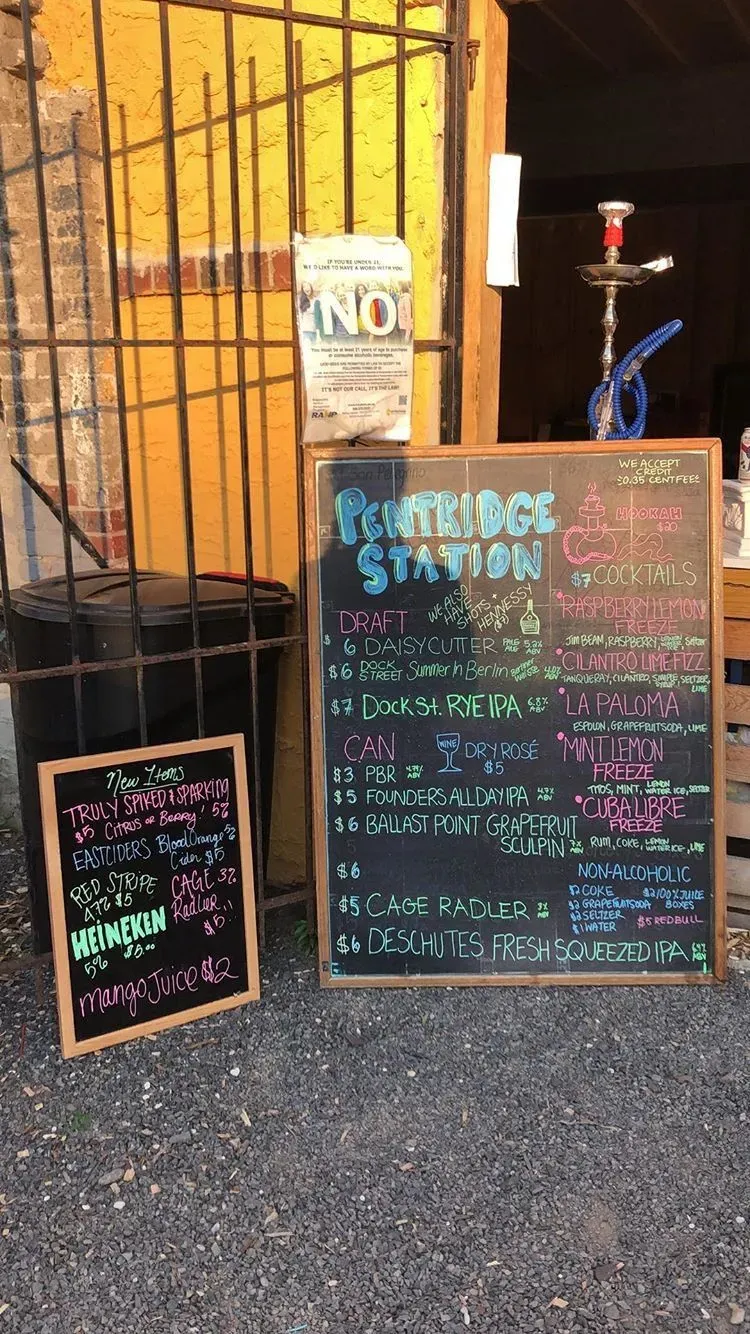 IF YOU'RE UNDER 21,
WE'D LIKE TO HAVE A WORD WITH YOU.
NO
You must be at least 21 years of age to purchase
or consume alcoholic beverages.
IT'S NOT OUR CALL, IT'S THE LAW!
RAMP
San Pellegrino
WE ACCEPT
CREDIT
$0.35 CENT FEE
PENTRIDGE
STATION
HOOKAH
$20
WE ALSO
HAVE
SHOTS +
HENNESSY
DRAFT
$6 DAISY CUTTER PALE ALE 5.2% ABV
$6 DOCK STREET Summer In Berlin Berliner Weisse ABV
$7 DOCK ST. RYE IPA 6.8% ABV
CAN
WINE DRY ROSÉ
$5
$3 PBR 4.74% ABV
$5 FOUNDERS ALL DAY IPA 4.7% ABV
$6 BALLAST POINT GRAPEFRUIT
SCULPIN 7% ABV
$6
$5 CAGE RADLER 3% ABV
$6 DESCHUTES FRESH SQUEEZED IPA 6.4% ABV
$7 COCKTAILS
RASPBERRY LEMON
FREEZE
JIM BEAM, RASPBERRY, LEMON WATER ICE, Seltzer
CILANTRO LIME FIZZ
TANQUERAY, CILANTRO, SIMPLE SYRUP, SELTZER, LIME
LA PALOMA
ESPOLON, GRAPEFRUIT SODA, LIME
MINT LEMON
FREEZE
TITOS, MINT, LEMON WATER ICE, SELTZER
CUBA LIBRE
FREEZE
RUM, COKE, LEMON WATER ICE, LIME
NON-ALCOHOLIC
$2 COKE
$2 GRAPEFRUIT SODA
$2 SELTZER
$1 WATER
$2 100% JUICE
BOXES
$5 RED BULL
New Items
TRULY SPIKED & SPARKING
$5 Citrus or Berry! 5%
EASTCIDERS Blood Orange 5%
Cider $5
RED STRIPE
4.7% $5
CAGE 3%
Radler!!
$5
HEINEKEN
5% $5.00
mango Juice $2